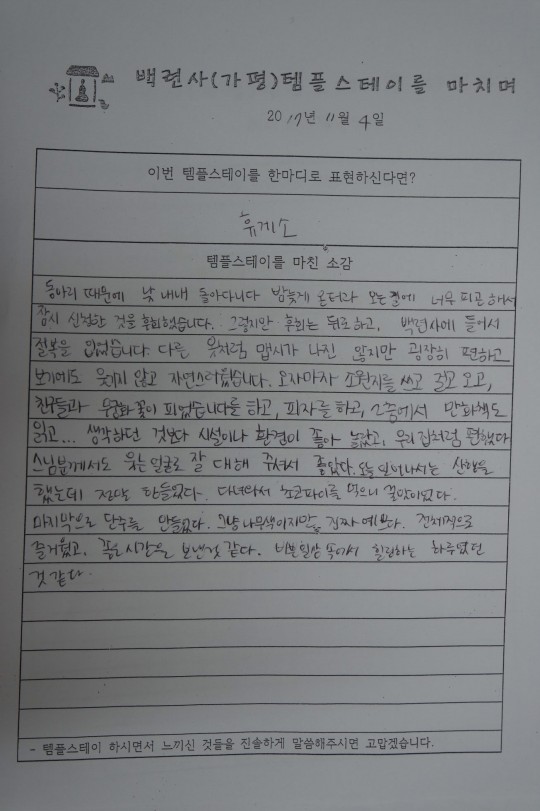 백련사(가평)템플스테이를 마치며
2017년 11월 4일
이번 템플스테이를 한마디로 표현하신다면?
휴게소
템플스테이를 마친 소감
동아리 때문에 낮 내내 돌아다니다 밤늦게 온터라 오는길에 너무 피곤해서
잠시 신청한 것을 후회했습니다. 그렇지만 후회는 뒤로하고, 백련사에 들어서
절복을 입었습니다. 다른 옷처럼 맵시가 나진 않지만 굉장히 편하고
보기에도 웃기지 않고 자연스러웠습니다. 오자마자 소원지를 쓰고 걸고 오고,
친구들과 무궁화 꽃이 피었습니다를 하고, 피자를 하고, 2층에서 만화책도
읽고... 생각하던 것보다 시설이나 환경이 좋아 놀랐고, 우리집처럼 편했다
스님분께서도 웃는 얼굴로 잘 대해 주셔서 좋았다. 오늘 일어나서는 산행을
했는데 정말 힘들었다. 다녀와서 초코파이를 먹으니 꿀맛이었다.
마지막으로 단주를 만들었다. 그냥 나무색이지만 진짜 예쁘다. 전체적으로
즐거웠고, 좋은 시간을 보낸것 같다. 바쁜 일상 속에서 힐링하는 하루였던
것 같다.
- 템플스테이 하시면서 느끼신 것들을 진솔하게 말씀해주시면 고맙겠습니다.